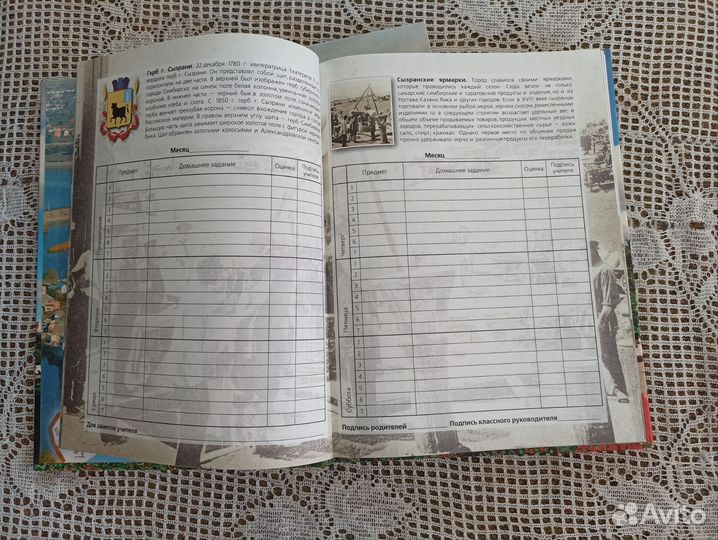 Герб г. Сызрани. 22 декабря 1780 г. императрица Екатерина II
герб г. Сызрани. Он представлял собой щит, разделенный
горизонтали на две части. В верхней был изображен герб губернского
г. Симбирска: на синем поле белая колонна, увенчанная
короной. В нижней части — черный бык в золотом поле, означающий
изобилие хлеба и скота. С 1850 г. герб г. Сызрани изменился:
герба венчает трехзубая корона — символ вхождения города в состав
Российской империи. В правом верхнем углу щита — герб Симбирска.
Большую часть щита занимает широкое золотое поле с фигурой черного
быка. Щит обрамлен золотыми колосьями и Александровской лентой.
Месяц
Предмет
Домашнее задание
Оценка
Подпись
учителя
Понедельник
1
2
3
4
5
6
7
Вторник
1
2
3
4
5
6
7
Среда
1
2
3
4
5
6
7
Для заметок учителя
Сызранские ярмарки. Город славился своими ярмарками,
которые проводились каждый сезон. Сюда везли не только
самарские, симбирские и саратовские продукты и изделия, но и из
Ростова, Казани, Яика и других городов. Если в XVIII веке сызранцы
торговали в основном рыбой, икрой, зерном, скотом, ремесленными
изделиями, то в следующем столетии возрастает удельный вес в
общем объеме продаваемых товаров, продукции местных уездных
заводов, перерабатывающих сельскохозяйственное сырье — кожи
сало, спирт, крахмал. Однако первое место по объемам продаж
прочно удерживало зерно и различные продукты его переработки.
Месяц
Предмет
Домашнее задание
Оценка
Подпись
учителя
Четверг
1
2
3
4
5
6
7
Пятница
1
2
3
4
5
6
7
Суббота
1
2
3
4
5
6
7
Подпись родителей Подпись классного руководителя
Avito